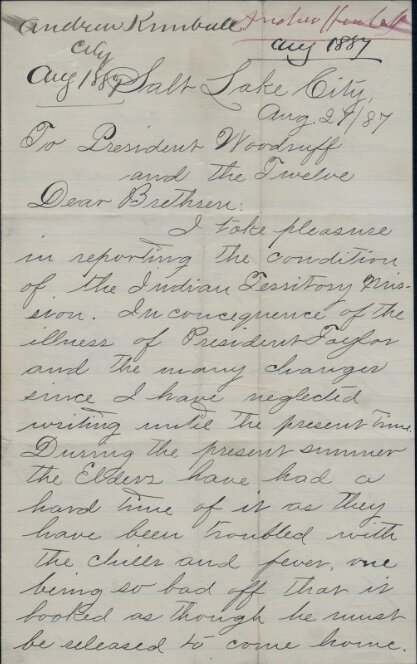 Andrew Kimball
City
Aug 1887
Andrew Kimball
Aug 1887
Salt Lake City,
Aug. 29/87
To President Woodruff
and the Twelve
Dear Brethren:
I take pleasure
in reporting the condition
of the Indian Territory Mis-
sion. In concequence of the
illness of President Taylor
and the many changes
since I have neglected
writing until the present time.
During the present summer
the Elders have had a
hard time of it as they
have been troubled with
the chills and fever, one
being so bad off that it
looked as though he must
be released to come home.